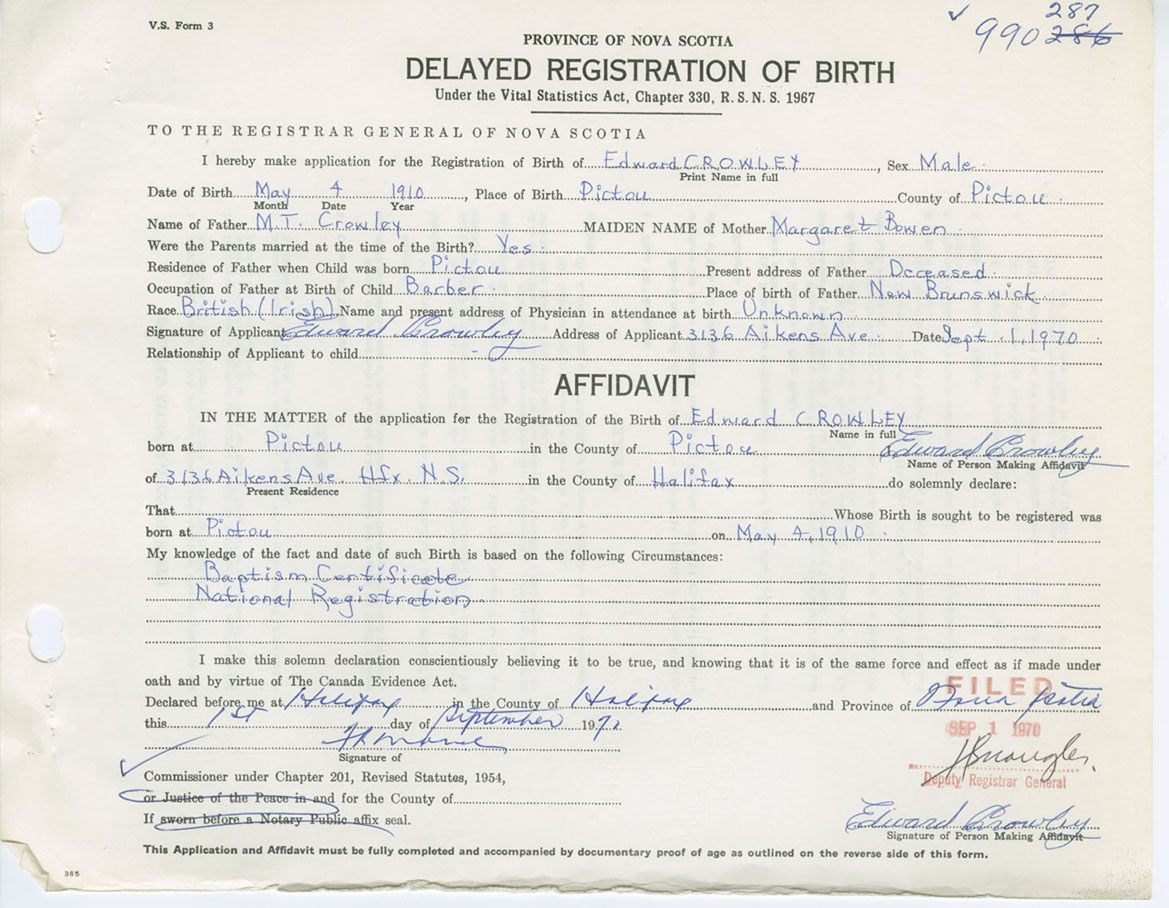 V.S. Form 3
✓ 287
990 286
PROVINCE OF NOVA SCOTIA
DELAYED REGISTRATION OF BIRTH
Under the Vital Statistics Act, Chapter 330, R. S. N. S. 1967
TO THE REGISTRAR GENERAL OF NOVA SCOTIA
I hereby make application for the Registration of Birth of Edward CROWLEY, Sex Male
Print Name in full
Date of Birth May 4 1910, Place of Birth Pictou County of Pictou
Month Date Year
Name of Father M.T. Crowley MAIDEN NAME of Mother Margaret Bowen
Were the Parents married at the time of the Birth? Yes
Residence of Father when Child was born Pictou Present address of Father Deceased
Occupation of Father at Birth of Child Barber Place of birth of Father New Brunswick
Race British (Irish) Name and present address of Physician in attendance at birth Unknown
Signature of Applicant Edward Crowley Address of Applicant 3136 Aikens Ave Date Sept. 1, 1970
Relationship of Applicant to child -
AFFIDAVIT
IN THE MATTER of the application for the Registration of the Birth of Edward CROWLEY
Name in full
born at Pictou in the County of Pictou Edward Crowley
Name of Person Making Affidavit
of 3136 Aikens Ave. Hfx. N.S. in the County of Halifax do solemnly declare:
Present Residence
That Whose Birth is sought to be registered was
born at Pictou on May 4, 1910
My knowledge of the fact and date of such Birth is based on the following Circumstances:
Baptism Certificate
National Registration
I make this solemn declaration conscientiously believing it to be true, and knowing that it is of the same force and effect as if made under
oath and by virtue of The Canada Evidence Act.
FILED
Declared before me at Halifax in the County of Halifax and Province of Nova Scotia
this 1st day of September 197
SEP 1 1970
Signature of
Deputy Registrar General
Commissioner under Chapter 201, Revised Statutes, 1954,
or Justice of the Peace in and for the County of
If sworn before a Notary Public affix seal.
Edward Crowley
Signature of Person Making Affidavit
This Application and Affidavit must be fully completed and accompanied by documentary proof of age as outlined on the reverse side of this form.
365